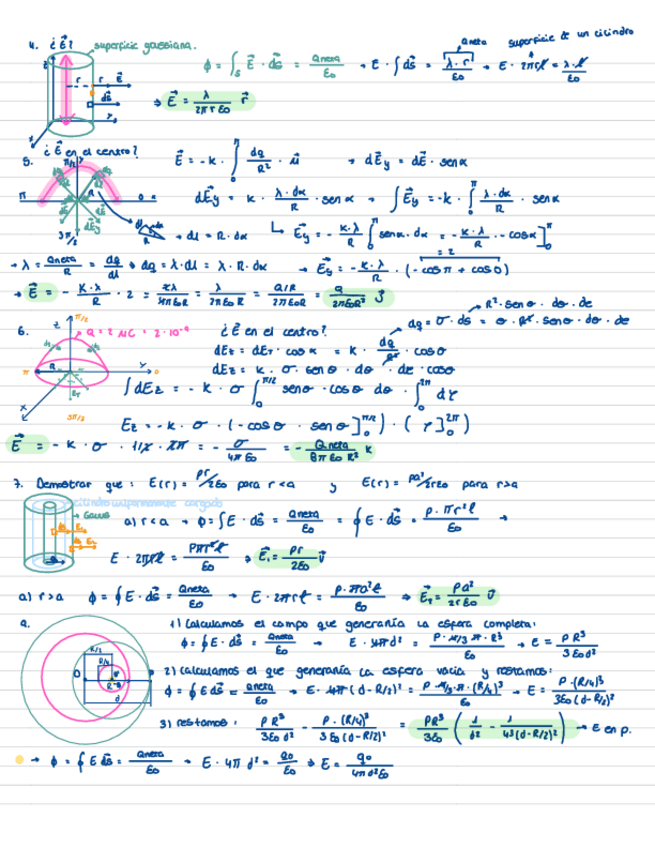 4. ¿E⃗? superficie gaussiana.
Qneta superficie de un cilindro
ϕ = ∫s E⃗ · ds⃗ = Qneta/ε0 → E · ∫ds⃗ = λ·r/ε0 → E · 2πrl = λ·l/ε0
z r r E⃗
ds⃗
→ E⃗ = λ/(2πrε0) r⃗
x y
5. ¿E⃗ en el centro?
E⃗ = -k · ∫0^π dq/R² · u⃗ → dE⃗y = dE⃗ · senα
π/2
dE⃗y = k · λ·dα/R · senα → ∫E⃗y = -k · ∫0^π λ·dα/R · senα
π R 0
dE⃗y
3π/2
→ dl = R·dα
E⃗y = - k·λ/R ∫0^π senα·dα = - k·λ/R · -cosα]0^π
→ λ = Qneta/R = dq/dl → dq = λ·dl = λ·R·dα → E⃗y = - k·λ/R · (-cosπ + cos0)
= 2
→ E⃗ = - k·λ/R · 2 = 2λ/4πε0R = λ/2πε0R = Q/R/2πε0R = Q/2πε0R² j⃗
R²·senθ·dθ·de
6. z π/2 Q = 2 μC = 2·10⁻⁹ ¿E⃗ en el centro? dq = σ·ds = σ·R²·senθ·dθ·de
dEz = dET · cosα = k · dq/R² · cosθ
dEz = k · σ · senθ · dθ · de · cosθ
π R y 0
x
3π/2
∫dEz = - k · σ ∫0^π/2 senθ · cosθ dθ · ∫0^2π dγ
Ez = -k · σ · (-cosθ · senθ]0^π/2) · (γ]0^2π)
E⃗ = - k · σ · 1/2 · 2π = - σ/4πε0 = - Qneta/8πε0R² k
7. Demostrar que : E(r) = ρr/2ε0 para r<a y E(r) = ρa²/2rε0 para r>a
cilindro uniformemente cargado
Gauss
a) r<a → ϕ = ∫E · ds⃗ = Qneta/ε0 = ∮E · ds⃗ = ρ·πr²l/ε0 →
E · 2πrl = ρπr²l/ε0 → E⃗1 = ρr/2ε0 v⃗
a) r>a ϕ = ∮E·ds⃗ = Qneta/ε0 → E · 2πrl = ρ·πa²l/ε0 → E⃗2 = ρa²/2rε0 v⃗
9. 1) Calculamos el campo que generaría la esfera completa:
ϕ = ∮E · ds⃗ = Qneta/ε0 → E · 4πd² = ρ·4/3·π·R³/ε0 → E = ρR³/3ε0d²
R/2
R/4
d
2) Calculamos el que generaría la esfera vacía y restamos:
ϕ = ∮E ds⃗ = Qneta/ε0 → E · 4π(d-R/2)² = ρ·4/3·π·(R/4)³/ε0 → E = ρ·(R/4)³/3ε0(d-R/2)²
3) restamos : ρR³/3ε0d² - ρ·(R/4)³/3ε0(d-R/2)² = ρR³/3ε0 (1/d² - 1/4³(d-R/2)²) → E en p.
→ ϕ = ∮E ds⃗ = Qneta/ε0 → E · 4πd² = q0/ε0 → E = q0/4πd²ε0